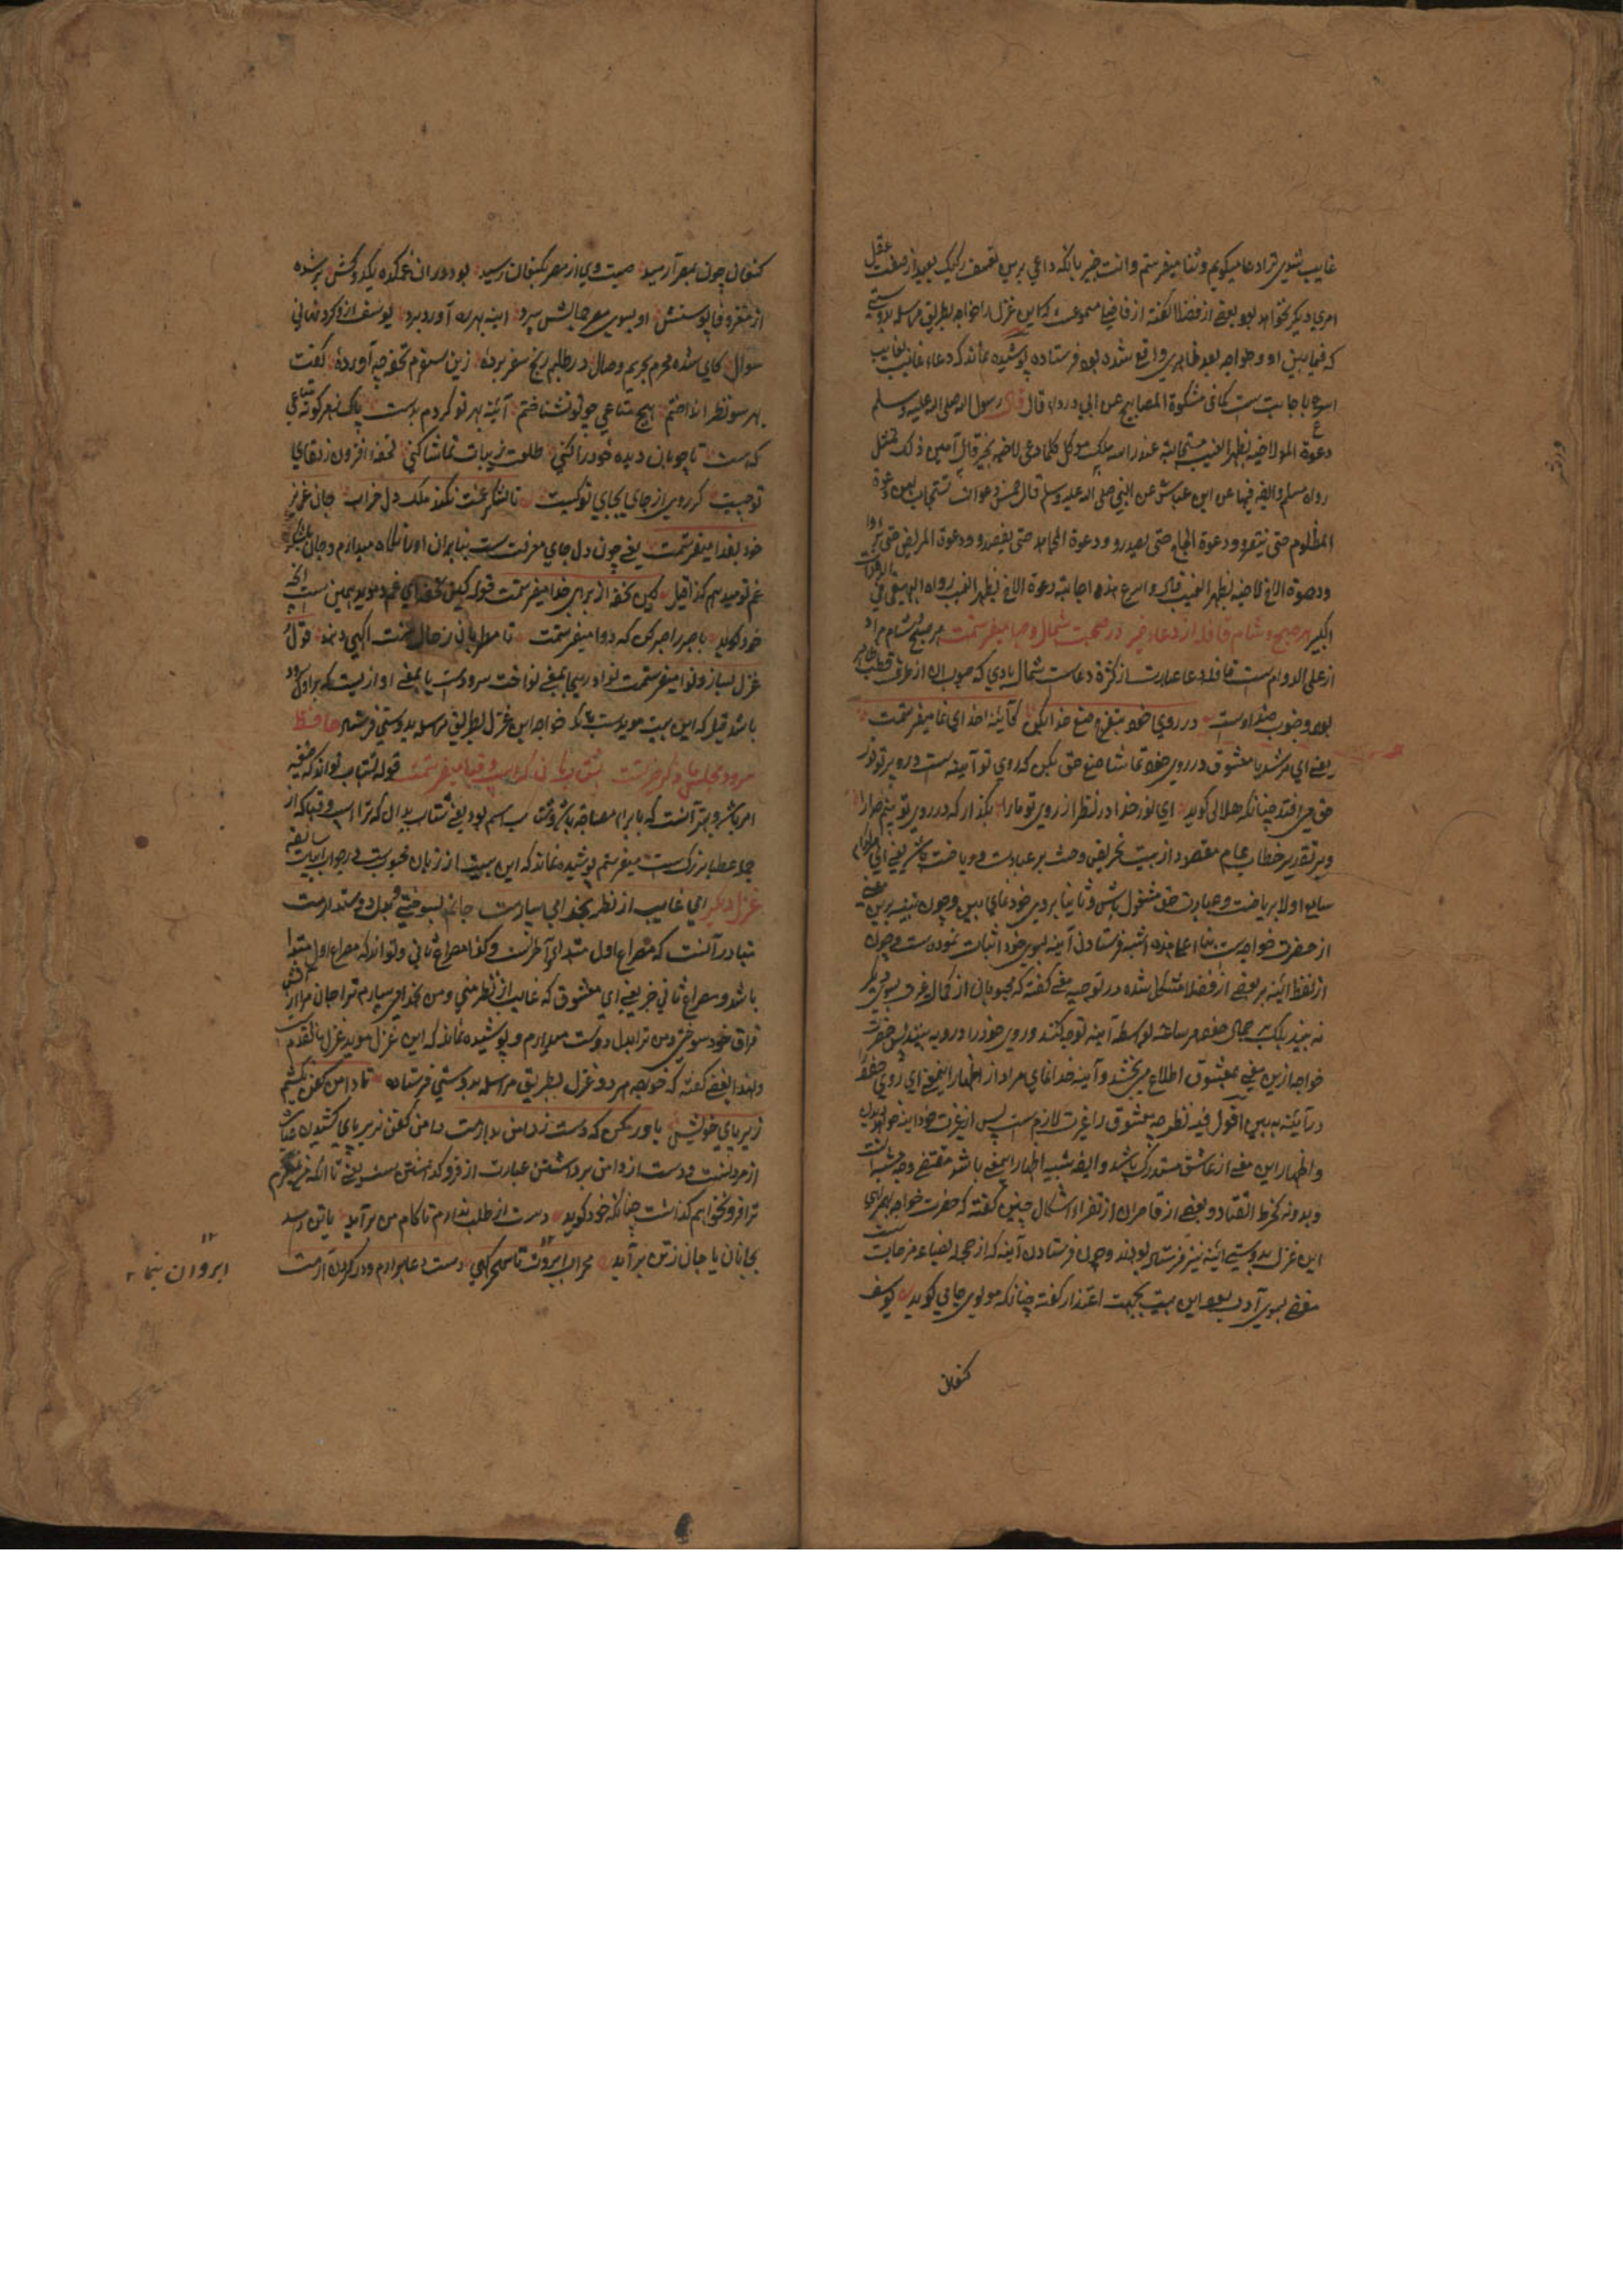 غایب شوی ترا دعا میگویم و ثنا میفرستم و انت خبیر بانکه داعی برین تعسف رکیک بعید از صفت عقل
امری دیگر نخواهد بود بعضی از فضلا گفته از قافیها مسموعست که این غزل را خواجه بطریق مراسله بدوستی
که فیما بین او و خواجه بعد ظاهری واقع شده بود فرستاده پوشیده نماند که دعاء غایب بغایب
اسرع باجابت ست کما فی مشکوة المصابیح عن ابی درداء قال قال رسول الله صلی الله علیه وسلم
دعوة المرء لاخیه بظهر الغیب مستجابة عند راسه ملک موکل کلما دعی لاخیه بخیر قال آمین و لک بمثل
رواه مسلم و ایضا فیها عن ابن عباس عن النبی صلی الله علیه وسلم قال خمس دعوات تستجاب لهن دعوة
المظلوم حتی ینتصر و دعوة الحاج حتی یصدر و دعوة المجاهد حتی یقعد و دعوة المریض حتی یبرأ
و دعوة الاخ لاخیه بظهر الغیب ثم قال و اسرع هذه اجابة دعوة الاخ بظهر الغیب رواه البیهقی فی الدعوات
الکبیر هر صبح و شام قافله از دعاء خیر در صحبت شمال و صبا میفرستمت هر صبح و شام مراد
از علی الدوام ست قافله دعا عبارت از کثرة دعاست شمال بادی که هبوب او از طرف قطب
بود و جنوب ضد اوست در روی خود تفرج صنع خدای کن کآئینه خدای نما میفرستمت
یعنی ای مرشد یا معشوق در روی خود تماشا صنع حق بکن که روی تو آینه ست درو پرتو نور
حق می افتد چنانکه هلالی گوید ای نور خدا در نظر از روی تو ما را بگذار که در روی تو بینم خدا را
و بر تقدیر خطاب عام مقصود از بیت تحریض و حث بر عبادت و ریاضت باشد یعنی ای
سایه اولا بریاضت و عبادت حق مشغول باش و ثانیا بروی خود خدای بین و چون بنیه برین معنی
از حضرت خواجه ست بناء علی هذه اشبه فرستادن آینه بسوی خود اثبات نموده ست و چون
از لفظ ائینه بر بعضی از فضلا مشکل شده در توجیه معنی گفته که محبوبان از کمال غرور بسوی دیگر
نه بینند بلکه بر جمال خود هر ساعت بواسطه آینه توجه کنند و روی خود را در و به بینند پس حضرت
خواجه ازین معنی بمعشوق اطلاع می بخشد و آینه خدا نمای مراد از اظهار اینمعنی ای روی خود
در آئینه به بین اقول فیه نظر چه معشوق را غیرت لازم ست پس از غیرت خود آینه خواهد دید
و اظهار این معنی از عاشق مستدرک باشد و ایضا تشبیه اظهار اینمعنی باشد مقتضی وجه شبه است
و بدونه خرط القتاد و بعضی از قاصران از تقریر اشکال چنین گفته که حضرت خواجه همراه
این غزل بدوستی ائینه نیز فرستاده بودند و چون فرستادن آینه که از جمله بضاعه مزجات ست
مفضی بسوی آدب بود این بیت بجهت اعتذار گفته چنانکه مولوی جامی گوید یوسف
کنعان
ورزش
کنعان چون بمصر آرمید صیت وی از مصر بکنعان رسید بود دران غمکده یک دوستش پر شده
از مغز وفا پوستش او بسوی مصر جمالش سپرد آینه بهر ره آورد برد یوسف ازو کرد نهانی
سوال کای شده محرم بحریم وصال در طلبم رنج سفر برده زین سفرم تحفه چه آورده گفت
بهر سو نظر انداختم هیچ متاعی چو تو نشناختم آئینه بهر تو کردم بدست پاک ز هر گونه متاعی
که هست تا چو بان دیده خود را کنی طلعت زیبات تماشا کنی تحفه افزون ز لقای
تو چیست گر روی از جای بجای تو کیست تا لشکر غمت نکند ملک دل خراب جان عزیز
خود بفدا میفرستمت یعنی چون دل جای معرفت ست بنابران او را نگاه میدارم و جان عزیز
غم تو میدهم کذا قیل کین تحفه از برای خدا میفرستمت قوله کین تحفه
خود گوید با درد صبر کن که دوا میفرستمت تا مطربان ز حال منت آگهی دهند قول و
غزل بساز و نوا میفرستمت نوا درینجا بمعنی نواخت سرودست یا بمعنی اوازیست که برای سرود
باشد قیل که این بیت مویدست که خواجه این غزل بطریق مراسله بدوستی فرستاده حافظ
سرود مجلس ما ذکر خیر تست بشتاب هان که اسپ و قبا میفرستمت قوله بشتاب تواند که صیغه
امر باشد و بهتر آنست که با برای مصاحبه باشد و شتاب اسم بود یعنی شتاب بدان که ترا اسپ و قبا که از
جمله عطایا بزرگ ست میفرستم پوشیده نماند که این بیت از زبان محبوبست در جواب ابیات سابقه
غزل دیگر ای غایب از نظر بخدا می سپارمت جانم بسوختی و بدل دوستدارمت
متبادر آنست که مصراع اول مبتدای آخر است و کذا مصراع ثانی و تواند که مصراع اول مبتدا
باشد و مصراع ثانی خبر یعنی ای معشوق که غایب از نظر منی و من بخدا می سپارم ترا جان مرا از آتش
فراق خود سوختی و من ترا بدل دوست میدارم و پوشیده نماند که این غزل موید غزل ما تقدم ست
و لهذا بعضی گفته که خواجه هر دو غزل بطریق مراسله بدوستی فرستاده تا دامن کفن نکشم
زیر پای خویش باور مکن که دست ز دامن بدارمت دامن کفن زیر پای کشیدن عبارت
از مردنست و دست از دامن برداشتن عبارت از فروگذاشتن ست یعنی تا آنکه نمیرم
ترا فرو نخواهم گذاشت چنانکه خود گوید دست از طلب ندارم تا کام من برآید یا تن رسد
بجانان یا جان ز تن برآید محراب ابروت تا سحرگهی دست دعا برارم و در گردن آرمت
ابروان بنما